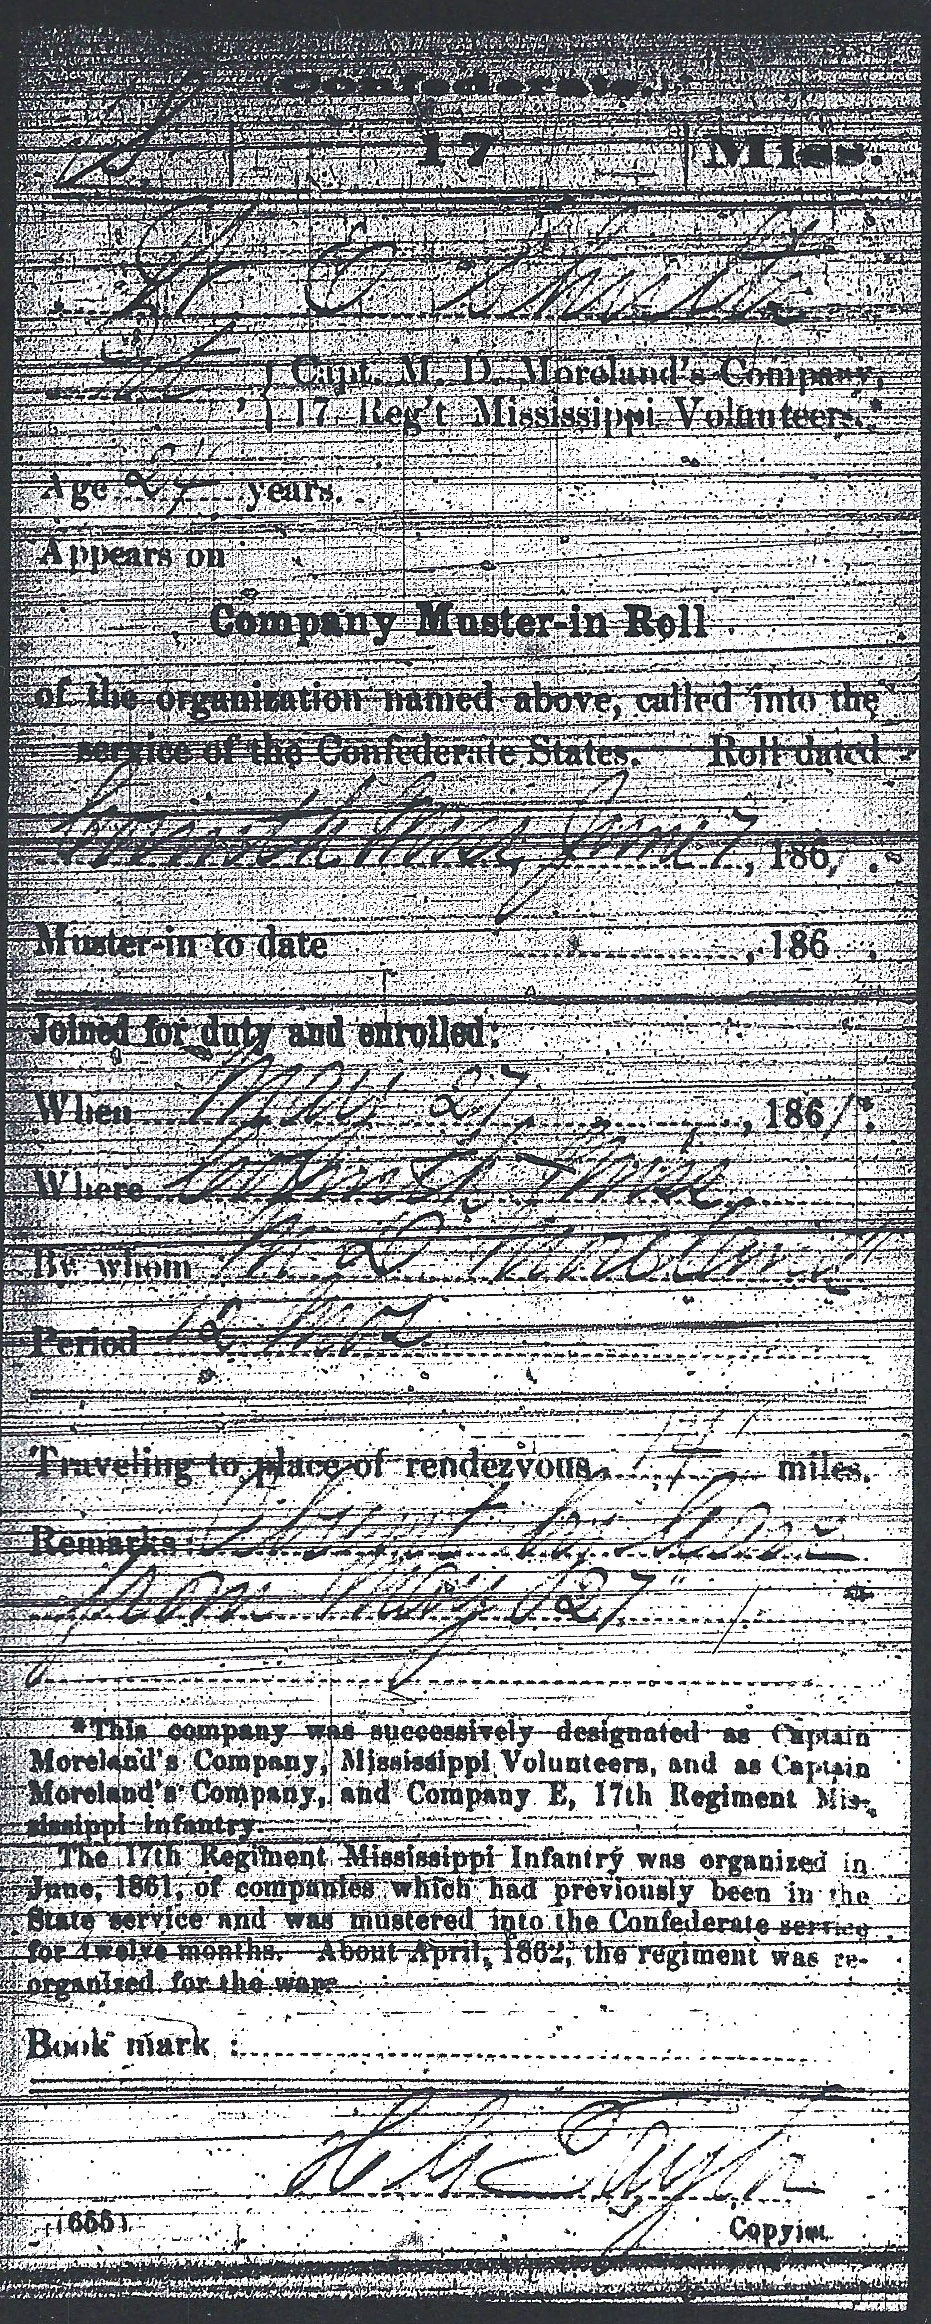 (Confederate.)
S | 17 | Miss.
E
Capt. M. D. Moreland's Company,
17 Reg't Mississippi Volunteers.*
Age 24 years.
Appears on
Company Muster-in Roll
of the organization named above, called into the
service of the Confederate States. Roll dated
Corinth Miss, June 7, 1861.
Muster-in to date , 186 ,
Joined for duty and enrolled:
When May 27, 1861.
Where Corinth Miss,
By whom M D Moreland
Period 12 mos
Traveling to place of rendezvous miles.
Remarks: Absent by leave
from May 27"
*This company was successively designated as Captain
Moreland's Company, Mississippi Volunteers, and as Captain
Moreland's Company, and Company E, 17th Regiment Mis-
sissippi Infantry.
The 17th Regiment Mississippi Infantry was organized in
June, 1861, of companies which had previously been in the
State service and was mustered into the Confederate service
for twelve months. About April, 1862, the regiment was re-
organized for the war.
Book mark:
(655)
Copyist.